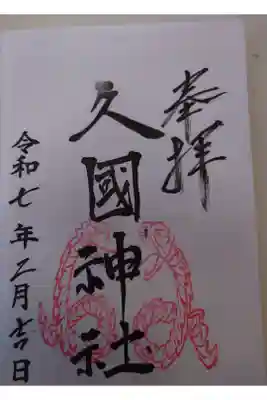 奉拝
久國神社
令和七年二月吉日